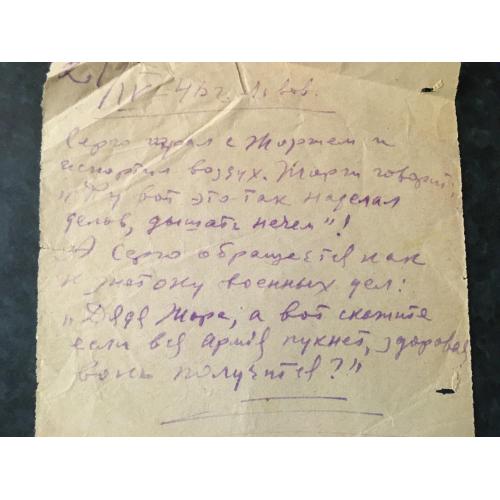 2/IV-46 г. Львов.
Серго играл с Жоржем и
испортил воздух. Жорж говорит:
"Фу вот это так наделал
делов, дышать нечем"!
А Серго обращается как
к знатоку военных дел:
"Дядя Жора, а вот скажите
если вся армия пукнет, здоровая
вонь получится?"